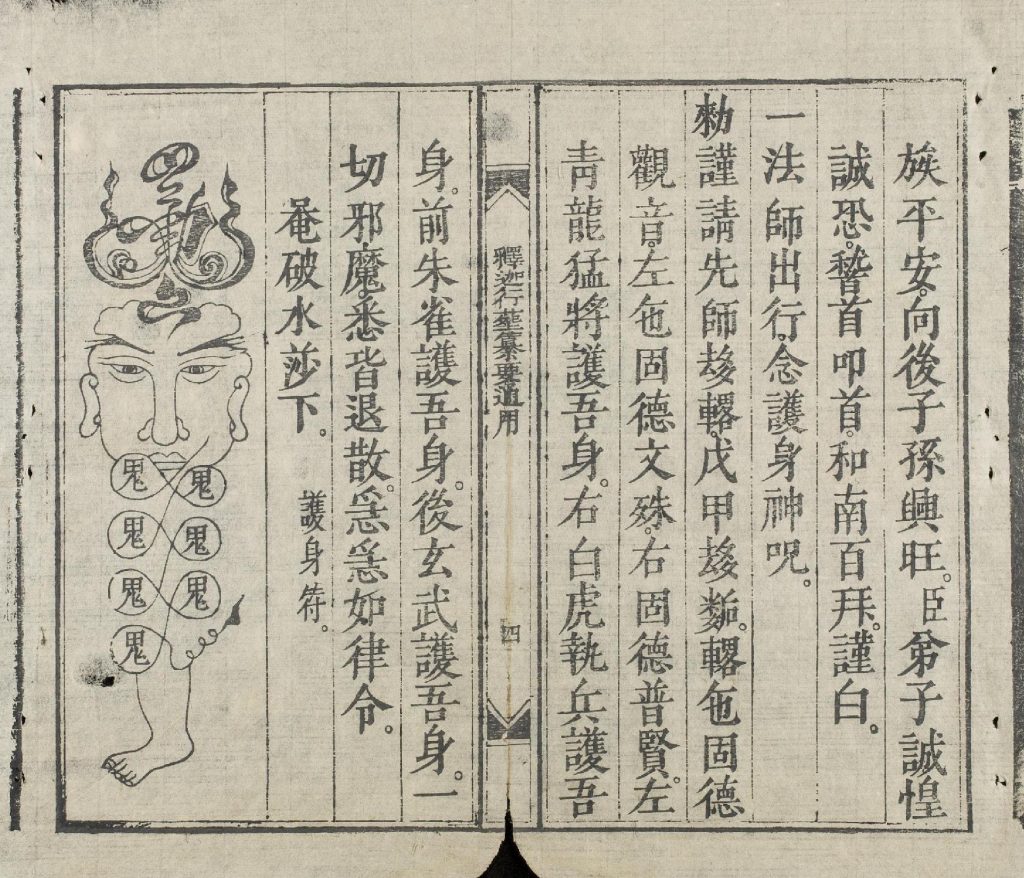 族平安。向後子孫興旺。臣弟子誠惶
誠恐。稽首叩首。和南百拜。謹白。
一法師出行。念護身神呪。
勑謹請先師 戊甲 㐌固德
觀音。左㐌固德文殊。右固德普賢。左
青龍猛將護吾身。右白虎執兵護吾
釋迦行 纂要道用
四
身。前朱雀護吾身。後玄武護吾身。一
切邪魔。悉皆退散。急急如律令。
奄破水莎下。
護身符。
鬼
鬼
鬼
鬼
鬼
鬼
鬼